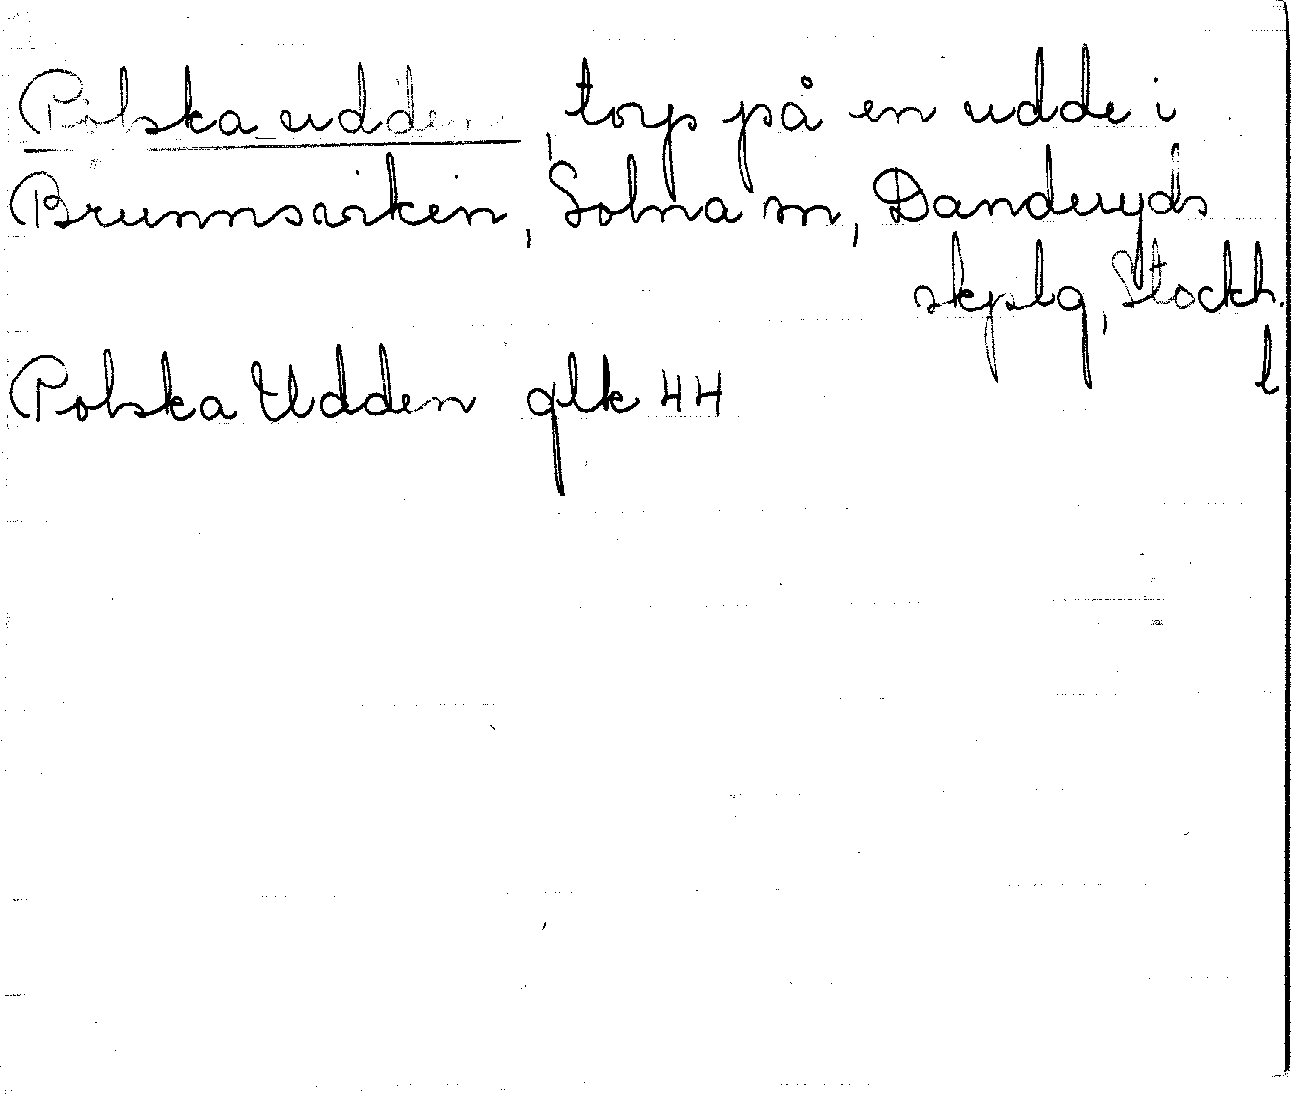 Polska udden, torp på en udde i
Brunnsviken, Solna sn, Danderyds
skplg, Stockh.
l
Polska Udden glk 44